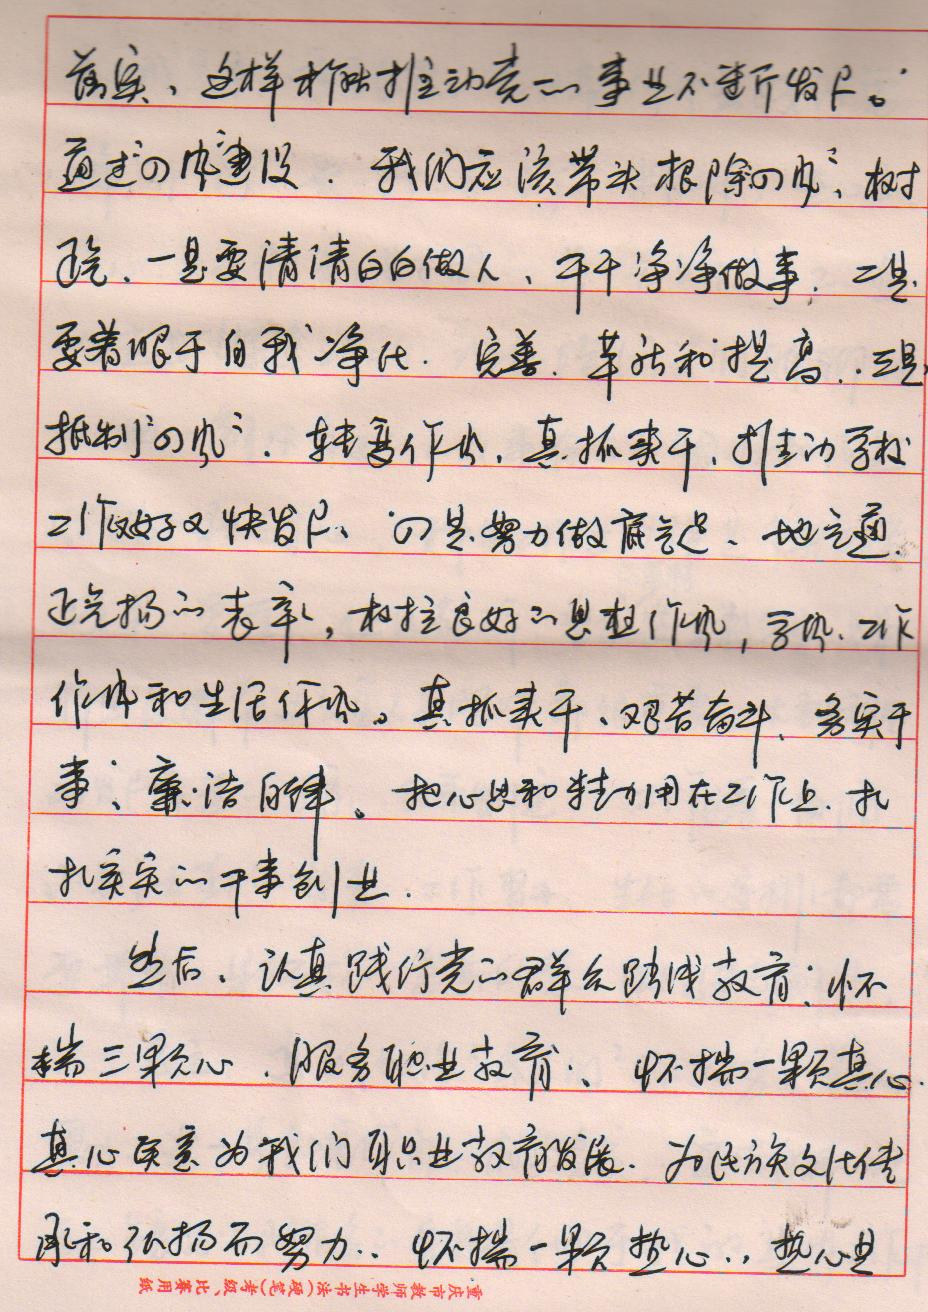 落实、这样才能推动党的事业不断发展。
通过"四风"建设，我们应该带头根除"四风"、树
正气、一是要清清白白做人、干干净净做事、二是
要着眼于自我净化、完善、革新和提高、三是
抵制"四风"、转变作风、真抓实干、推动学校
工作又好又快发展、四是努力做底气足、地气通、
正气扬的表率，树立良好的思想作风，学风、工作
作风和生活作风。真抓实干、艰苦奋斗、务实干
事、廉洁自律。把心思和精力用在工作上、扎
扎实实的干事创业.
然后、认真践行党的群众路线教育、怀
揣三颗心、服务职业教育、怀揣一颗真心、
真心实意为我们职业教育发展、为民族文化传
承和弘扬而努力、怀揣一颗热心、热心
重庆市教师学生书法(硬笔)考级、比赛用纸